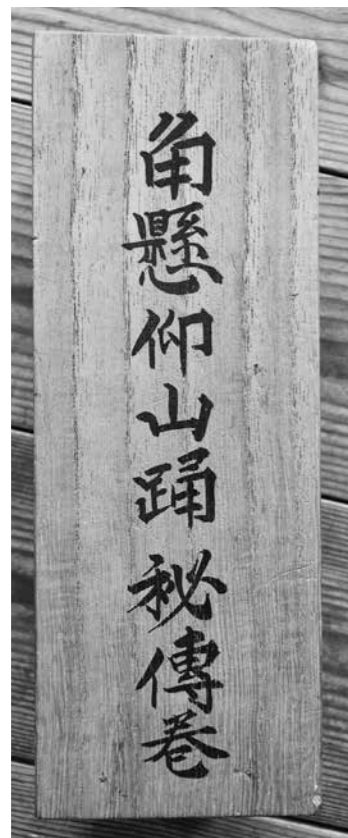 角懸仰山踊秘傳巻